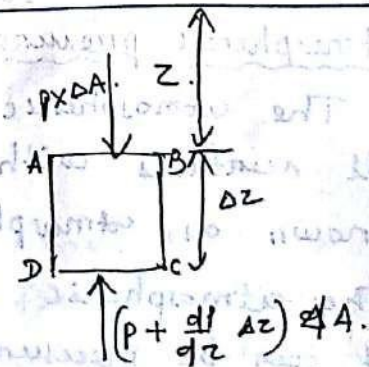 p×ΔA.
Z.
A
B
ΔZ
D
C
(p + dp/dz Δz) ΔA.